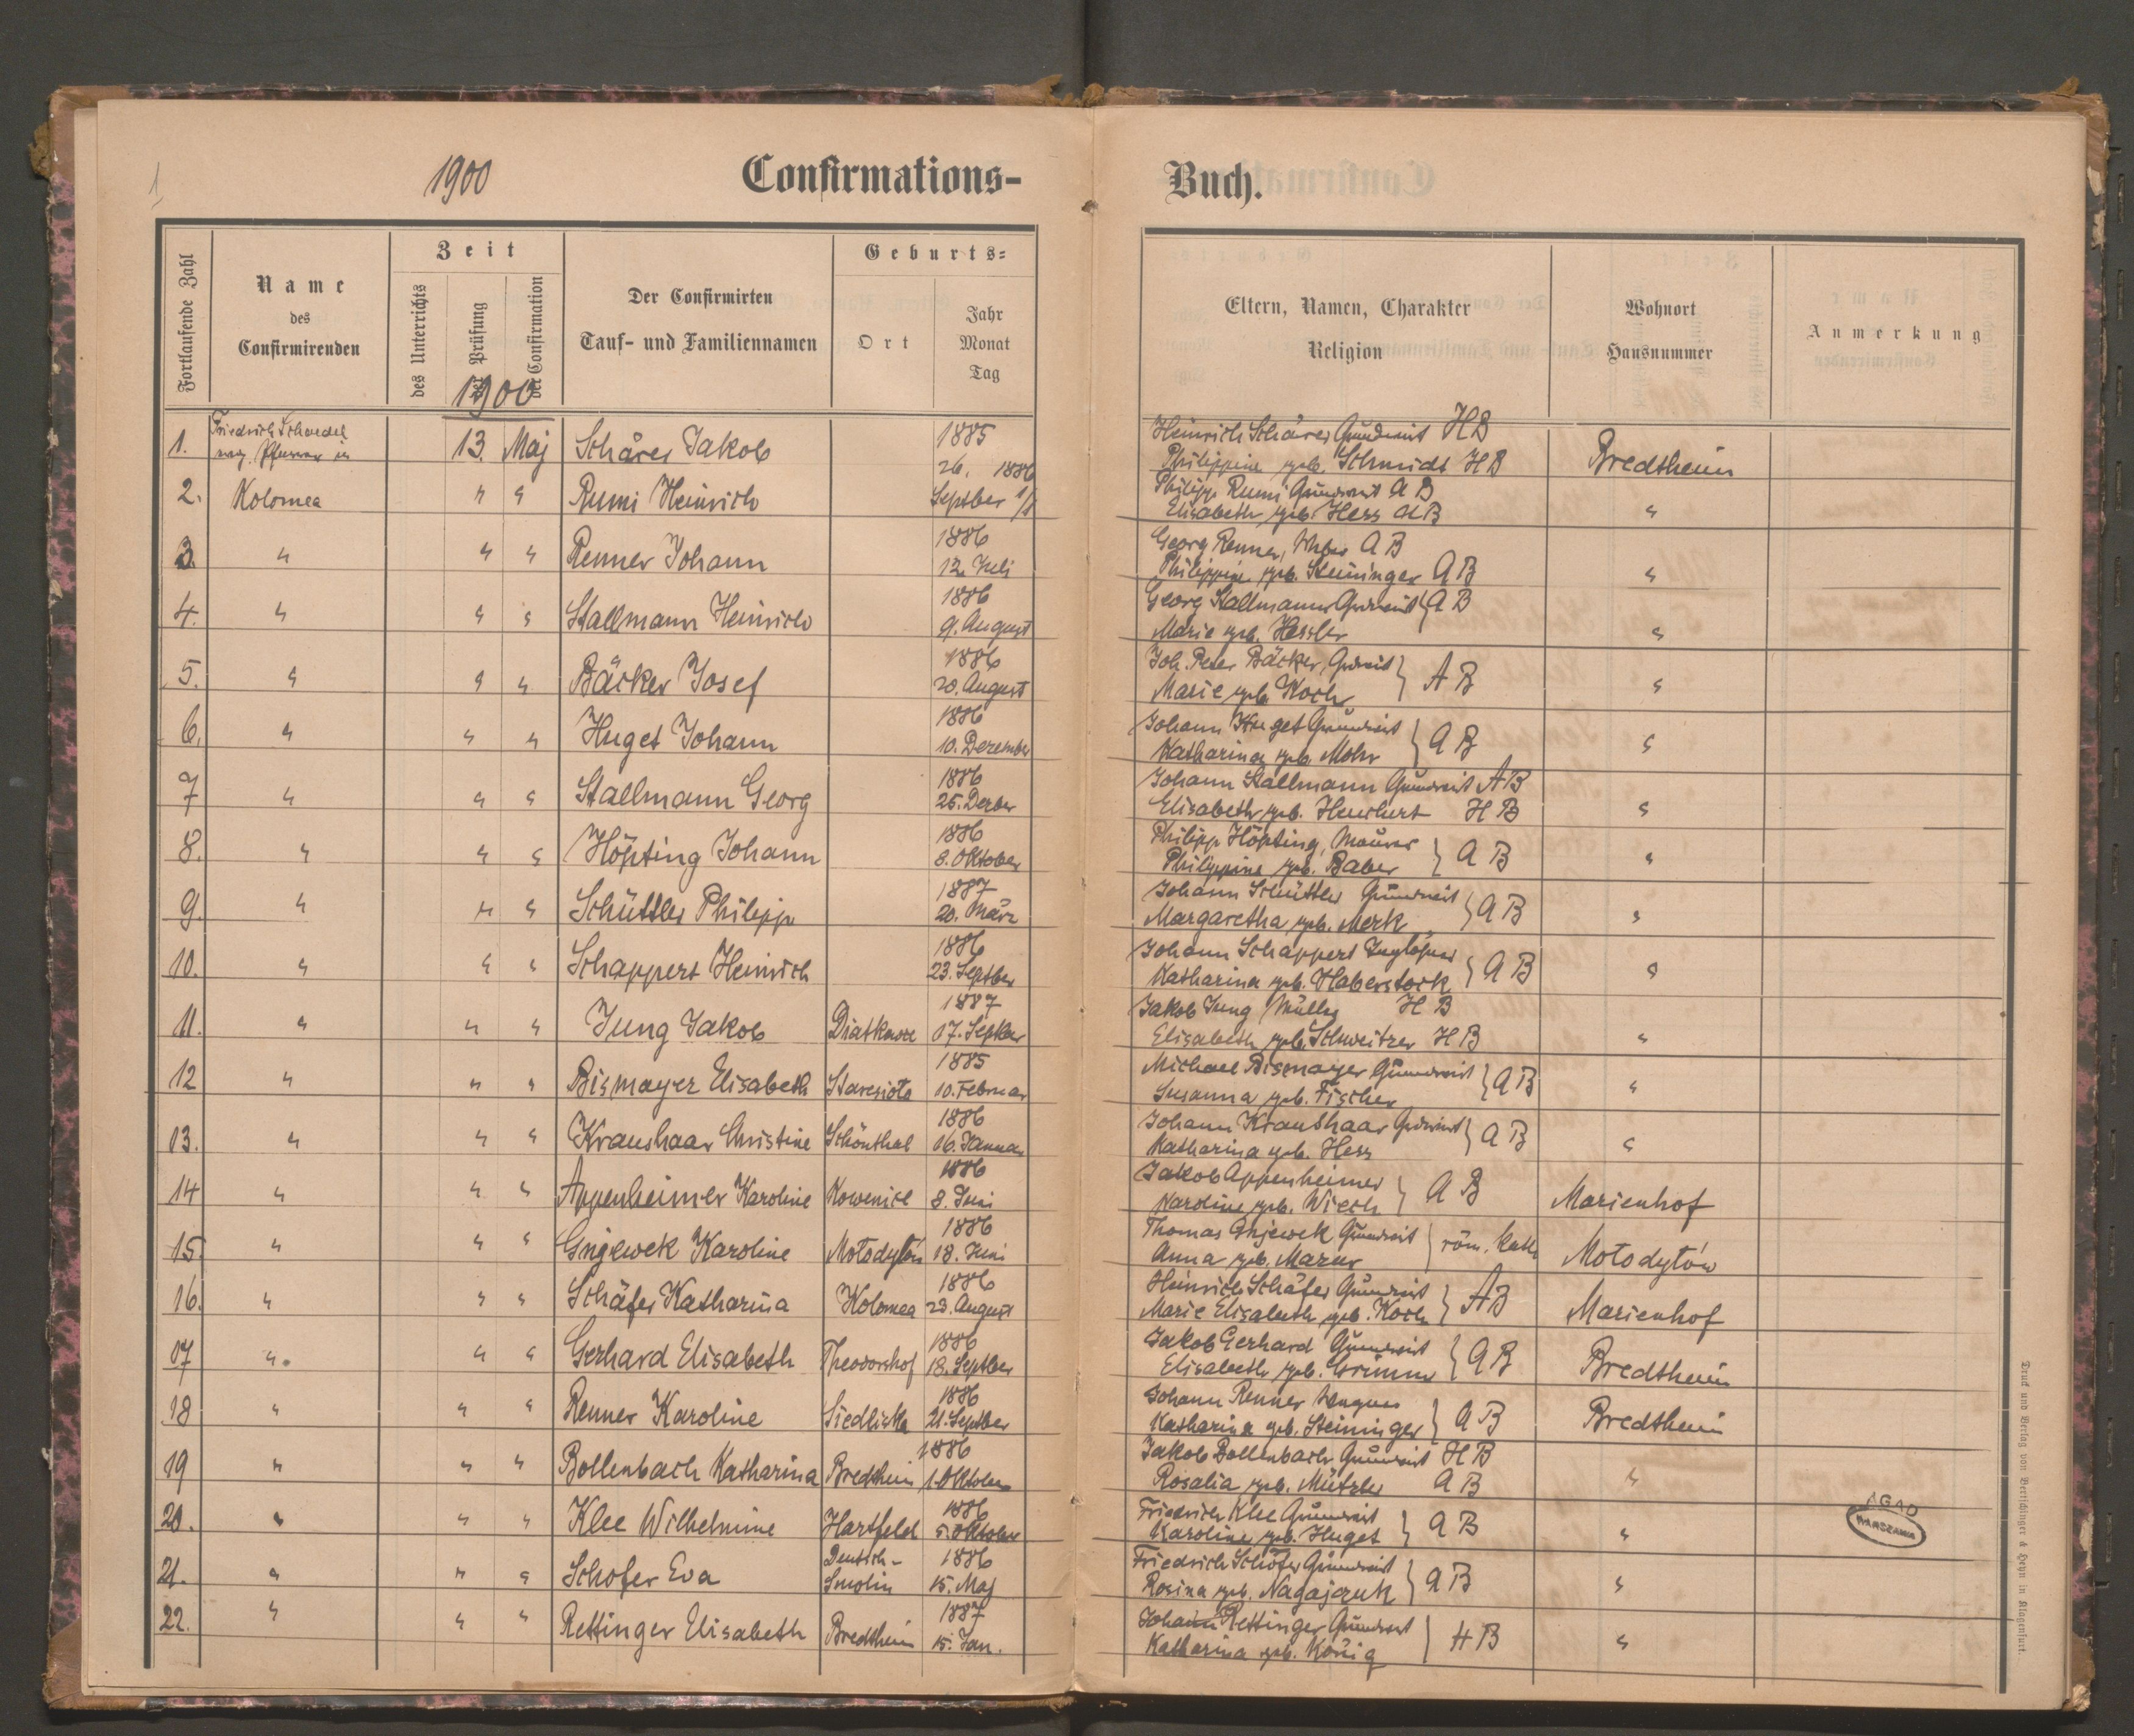 1
1900
Confirmations-
Buch.
Fortlaufende Zahl
Name
des
Confirmirenden
Zeit
des Unterrichts
der Prüfung
der Confirmation
1900
Der Confirmirten
Tauf- und Familiennamen
Geburts-
Ort
Jahr
Monat
Tag
Eltern, Namen, Charakter
Religion
Wohnort
Hausnummer
Anmerkung
1. Friedrich Schaedel 13. Maj Schärer Jakob 1885
evg. Pfarrer in 26.
Heinrich Schärer Grundwirt HB
Philippine geb. Schmidt HB Bredtheim
2. Kolomea " " Rumi Heinrich 1886
Septber
Philipp Rumi Grundwirt AB
Elisabeth geb. Hess AB "
3. " " " Renner Johann 1886
12. Juli
Georg Renner, AB
Philippine geb. Steininger AB "
4. " " " Stallmann Heinrich 1886
9. August
Georg Stallmann Grdwirt } AB
Marie geb. Hessler "
5. " " " Bäcker Josef 1886
20. August
Joh. Peter Bäcker, Grdwirt } AB
Marie geb. Koch "
6. " " " Huget Johann 1886
10. Dezember
Johann Huget Grundwirt } AB
Katharina geb. Mohr "
7 " " " Stallmann Georg 1886
25. Dezber
Johann Stallmann Grundwirt AB
Elisabeth geb. HB "
8. " " " Höpting Johann 1886
8. Oktober
Philipp Höpting, Maurer } AB
Philippine geb. Baber "
9. " " " Schüttler Philipp 1887
20. März
Johann Schüttler Grundwirt } AB
Margaretha geb. Merk "
10. " " " Schappert Heinrich 1886
23. Septber
Johann Schappert } AB
Katharina geb. Haberstock "
11. " " " Jung Jakob Diatkowce 1887
17. Septber
Jakob Jung Müller HB
Elisabeth geb. Schweitzer HB "
12 " " " Bismayer Elisabeth 1885
10. Februar
Michael Bismayer Grundwirt } AB
Susanna geb. Fischer "
13. " " " Kraushaar Christine Schönthal 1886
16. Januar
Johann Kraushaar Grdwirt } AB
Katharina geb. Hess "
14 " " " Appenheimer Karoline 1886
8. Juni
Jakob Appenheimer } AB
Karoline geb. Wiech Marienhof
15. " " " Gnjewek Karoline Mołodyłów 1886
18. Juni
Thomas Gnjewek Grundwirt } röm. kath
Anna geb. Mazur Mołodyłów
16. " " " Schäfer Katharina Kolomea 1886
23. August
Heinrich Schäfer Grundwirt } AB
Marie Elisabeth geb. Koch Marienhof
17 " " " Gerhard Elisabeth Theodorshof 1886
18. Septber
Jakob Gerhard Grundwirt } AB
Elisabeth geb. Grimm Bredtheim
18 " " " Renner Karoline Siedliska 1886
21. Septber
Johann Renner Wagner } AB
Katharina geb. Steininger Bredtheim
19 " " " Bollenbach Katharina Bredtheim 1886
1. Oktober
Jakob Bollenbach Grundwirt HB
Rosalia geb. Mützler AB "
20. " " " Klee Wilhelmine Hartfeld 1886
5. Oktober
Friedrich Klee Grundwirt } AB
Karoline geb. Huget "
21. " " " Schofer Eva Deutsch- 1886
Smolin 15. Maj
Friedrich Schofer Grundwirt } AB
Rosina geb. Nagajczuk "
22. " " " Rettinger Elisabeth Bredtheim 1887
15. Jan.
Johann Rettinger Grundwirt } HB
Katharina geb. König "
AGAD
WARSZAWA
Druck und Verlag von Bertschinger & Heyn in Klagenfurt.